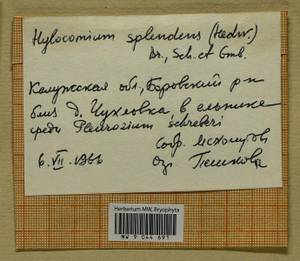 Hylocomium splendens (Hedw.)
Br., Sch. et Gmb.
Калужская обл., Боровский р-н
близ д. Чухловка, в ельнике
среди Pleurozium schreberi
Собр.
6.VII.1966
Herbarium MW, Bryophyta
MW 9 044 691